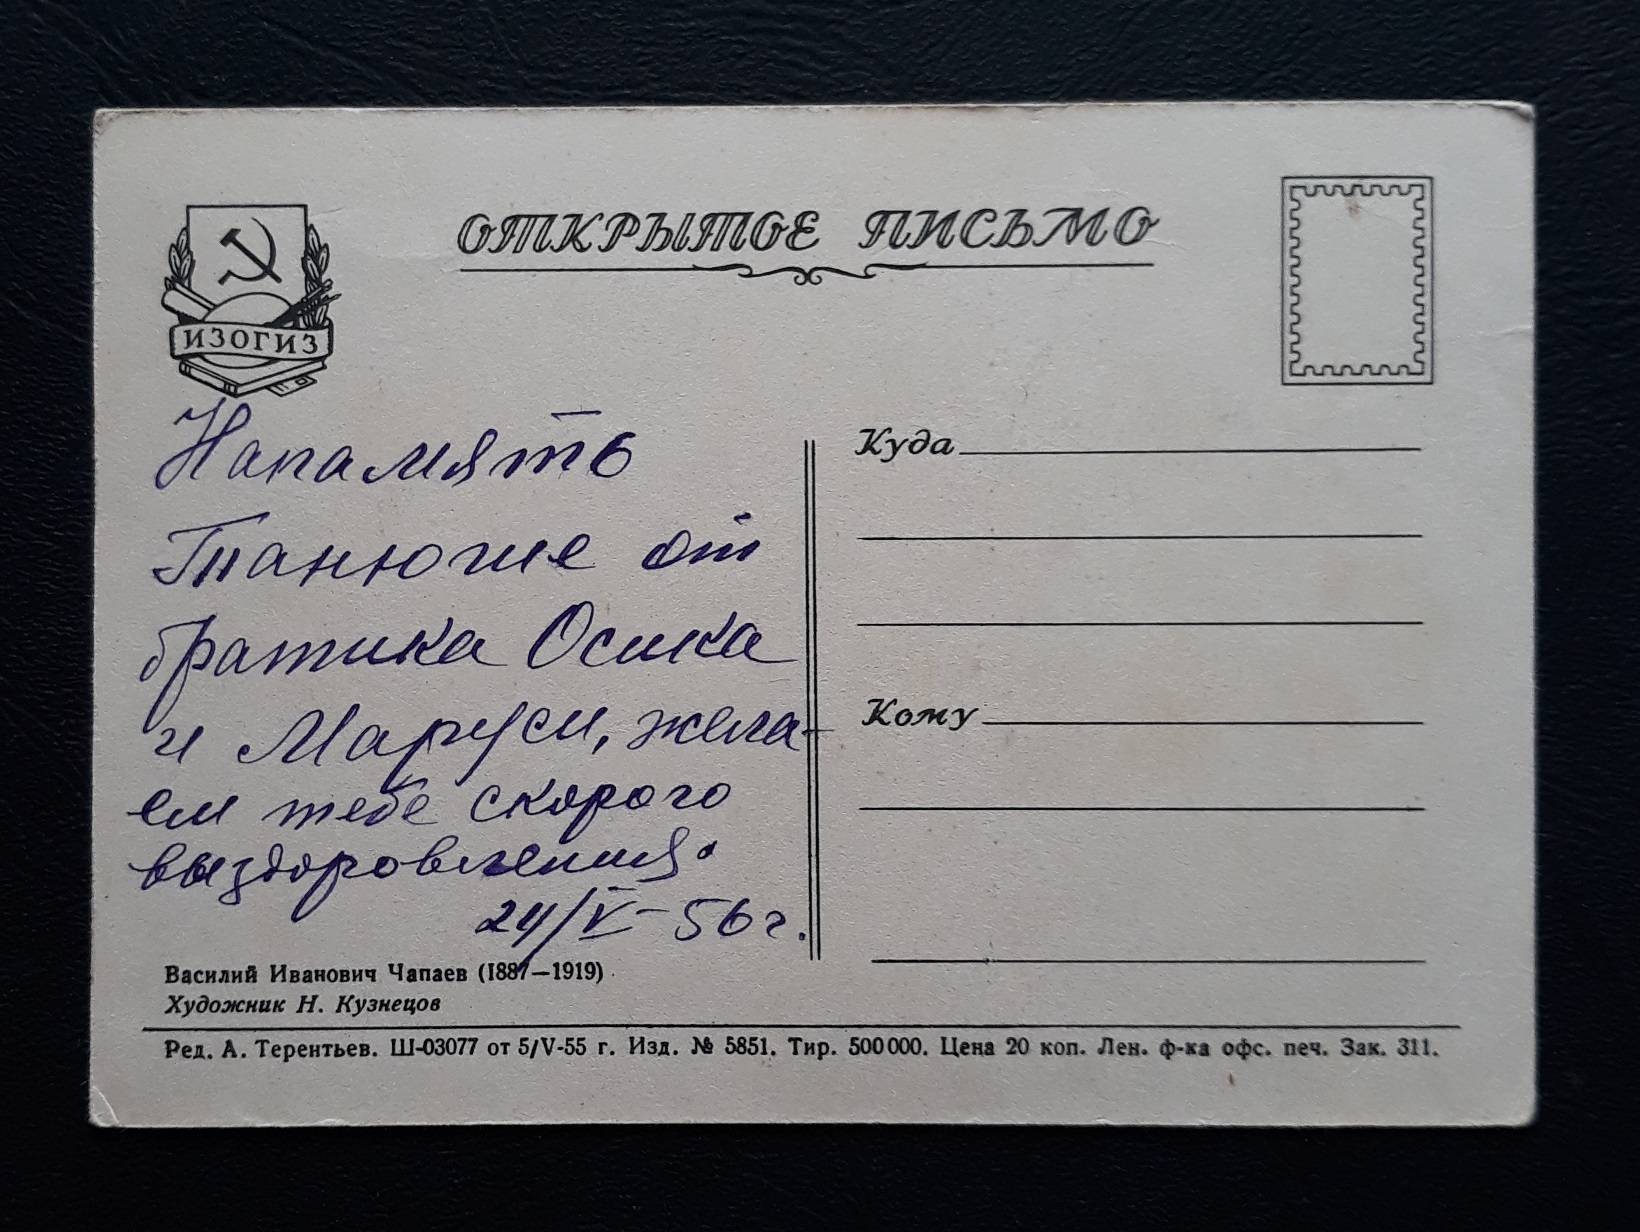 ОТКРЫТОЕ ПИСЬМО
ИЗОГИЗ
Напамять
Танюше от
братика Осика
и Маруси, жела-
ем тебе скорого
выздоровления.
24/V-56 г.
Куда
Кому
Василий Иванович Чапаев (1887—1919)
Художник Н. Кузнецов
Ред. А. Терентьев. Ш-03077 от 5/V-55 г. Изд. № 5851. Тир. 500000. Цена 20 коп. Лен. ф-ка офс. печ. Зак. 311.